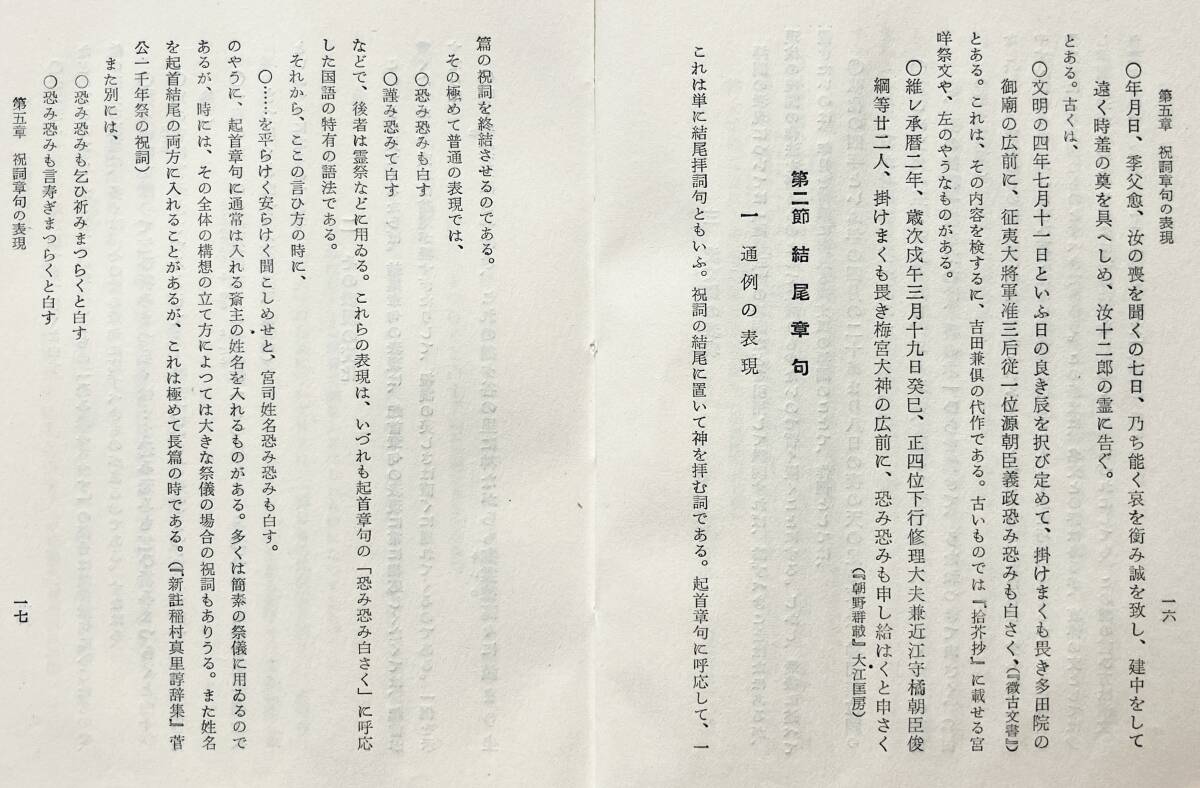 第五章　祝詞章句の表現
一六
〇年月日、季父愈、汝の喪を聞くの七日、乃ち能く哀を銜み誠を致し、建中をして
遠く時羞の奠を具へしめ、汝十二郎の霊に告ぐ。
とある。古くは、
〇文明の四年七月十一日といふ日の良き辰を択び定めて、掛けまくも畏き多田院の
御廟の広前に、征夷大将軍准三后従一位源朝臣義政恐み恐みも白さく、（『徴古文書』）
とある。これは、その内容を検するに、吉田兼倶の代作である。古いものでは『拾芥抄』に載せる宮
咩祭文や、左のやうなものがある。
〇維レ承暦二年、歳次戊午三月十九日癸巳、正四位下行修理大夫兼近江守橘朝臣俊
綱等廿二人、掛けまくも畏き梅宮大神の広前に、恐み恐みも申し給はくと申さく
（『朝野群載』大江匡房）
第二節　結尾章句
一　通例の表現
これは単に結尾拝詞句ともいふ。祝詞の結尾に置いて神を拝む詞である。起首章句に呼応して、一
篇の祝詞を終結させるのである。
その極めて普通の表現では、
〇恐み恐みも白す
〇謹み恐みて白す
などで、後者は霊祭などに用ゐる。これらの表現は、いづれも起首章句の「恐み恐み白さく」に呼応
した国語の特有の語法である。
それから、ここの言ひ方の時に、
〇……を平らけく安らけく聞こしめせと、宮司姓名恐み恐みも白す。
のやうに、起首章句に通常は入れる斎主の姓名を入れるものがある。多くは簡素の祭儀に用ゐるので
あるが、時には、その全体の構想の立て方によつては大きな祭儀の場合の祝詞もありうる。また姓名
を起首結尾の両方に入れることがあるが、これは極めて長篇の時である。（『新註稲村真里諄辞集』菅
公一千年祭の祝詞）
また別には、
〇恐み恐みも乞ひ祈みまつらくと白す
〇恐み恐みも言寿ぎまつらくと白す
第五章　祝詞章句の表現
一七